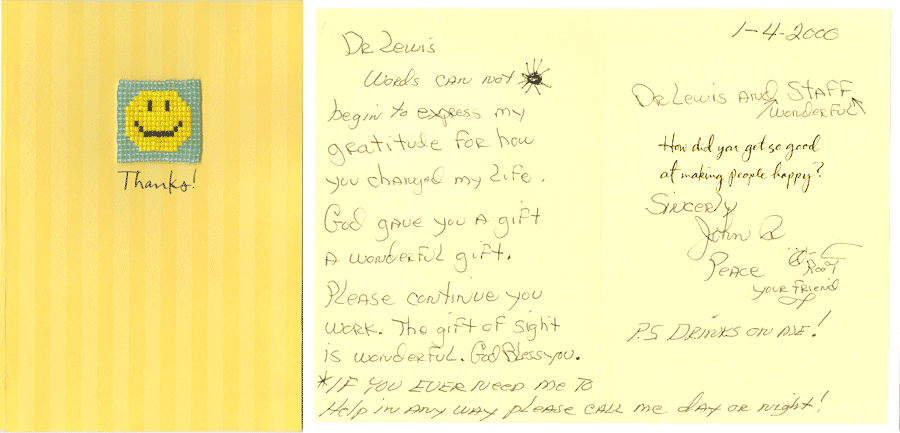 Thanks!
Dr Lewis
Words can not
begin to express my
gratitude for how
you changed my life.
God gave you a gift
a wonderful gift.
Please continue you
work. The gift of sight
is wonderful. God Bless you.
*IF YOU EVER NEED ME TO
Help in any way please call me day or night!
1-4-2000
Dr Lewis and Staff
wonderful
How did you get so good
at making people happy?
Sincerly
John
Peace
your friend
P.S Drinks on me!